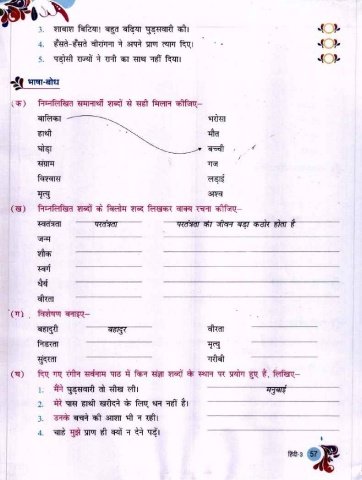 3. शाबाश बिटिया! बहुत बढ़िया घुड़सवारी की।
4. हँसते-हँसते वीरांगना ने अपने प्राण त्याग दिए।
5. पड़ोसी राज्यों ने रानी का साथ नहीं दिया।
भाषा-बोध
(क) निम्नलिखित समानार्थी शब्दों से सही मिलान कीजिए–
बालिका भरोसा
हाथी मौत
घोड़ा बच्ची
संग्राम गज
विश्वास लड़ाई
मृत्यु अश्व
(ख) निम्नलिखित शब्दों के विलोम शब्द लिखकर वाक्य रचना कीजिए–
स्वतंत्रता परतंत्रता परतंत्रता का जीवन बड़ा कठोर होता है
जन्म
शौक
स्वर्ग
धैर्य
वीरता
(ग) विशेषण बनाइए–
बहादुरी बहादुर वीरता
निडरता मृत्यु
सुंदरता गरीबी
(घ) दिए गए रंगीन सर्वनाम पाठ में किन संज्ञा शब्दों के स्थान पर प्रयोग हुए हैं, लिखिए–
1. मैंने घुड़सवारी तो सीख ली। मनुबाई
2. मेरे पास हाथी खरीदने के लिए धन नहीं है।
3. उनके बचने की आशा भी न रही।
4. चाहे मुझे प्राण ही क्यों न देने पड़ें।
हिंदी-3 57